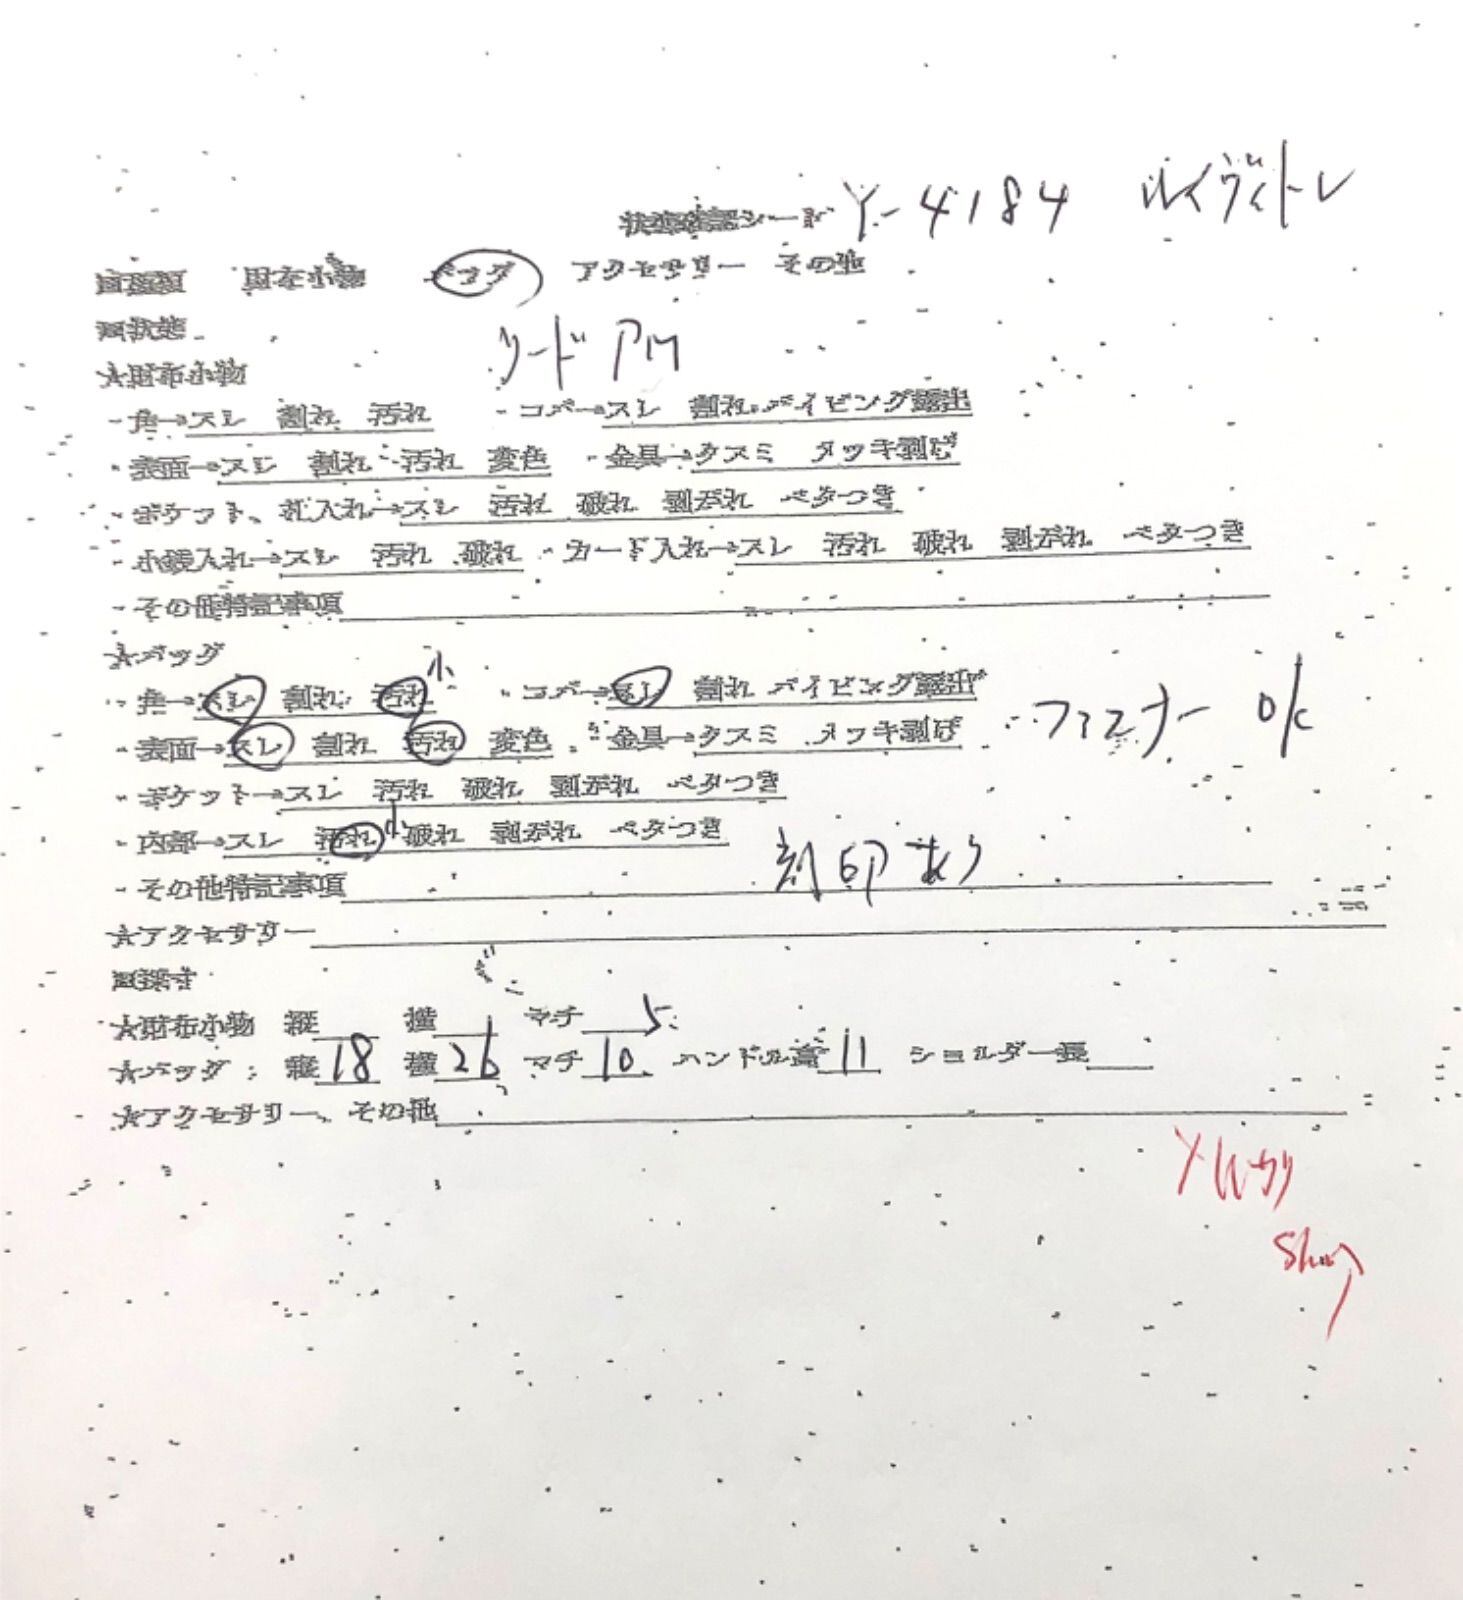 状態確認シート Y-4184 ルイヴィトン
□種類 財布小物 バッグ アクセサリー その他
□状態
リード PM
★財布小物
・角→スレ 割れ 汚れ ・コバ→スレ 割れ パイピング露出
・表面→スレ 割れ 汚れ 変色 ・金具→クスミ メッキ剥げ
・ポケット、札入れ→スレ 汚れ 破れ 剥がれ ベタつき
・小銭入れ→スレ 汚れ 破れ ・カード入れ→スレ 汚れ 破れ 剥がれ ベタつき
・その他特記事項
★バッグ
・角→スレ 割れ 汚れ 小 ・コバ→スレ 割れ パイピング露出
・表面→スレ 割れ 汚れ 変色 ・金具→クスミ メッキ剥げ ファスナー OK
・ポケット→スレ 汚れ 破れ 剥がれ ベタつき
・内部→スレ 汚れ 小 破れ 剥がれ ベタつき
・その他特記事項 刻印あり
★アクセサリー
□採寸
★財布小物 縦 横 マチ 5
★バッグ：縦 18 横 26 マチ 10 ハンドル高 11 ショルダー長
★アクセサリー、その他
Shop